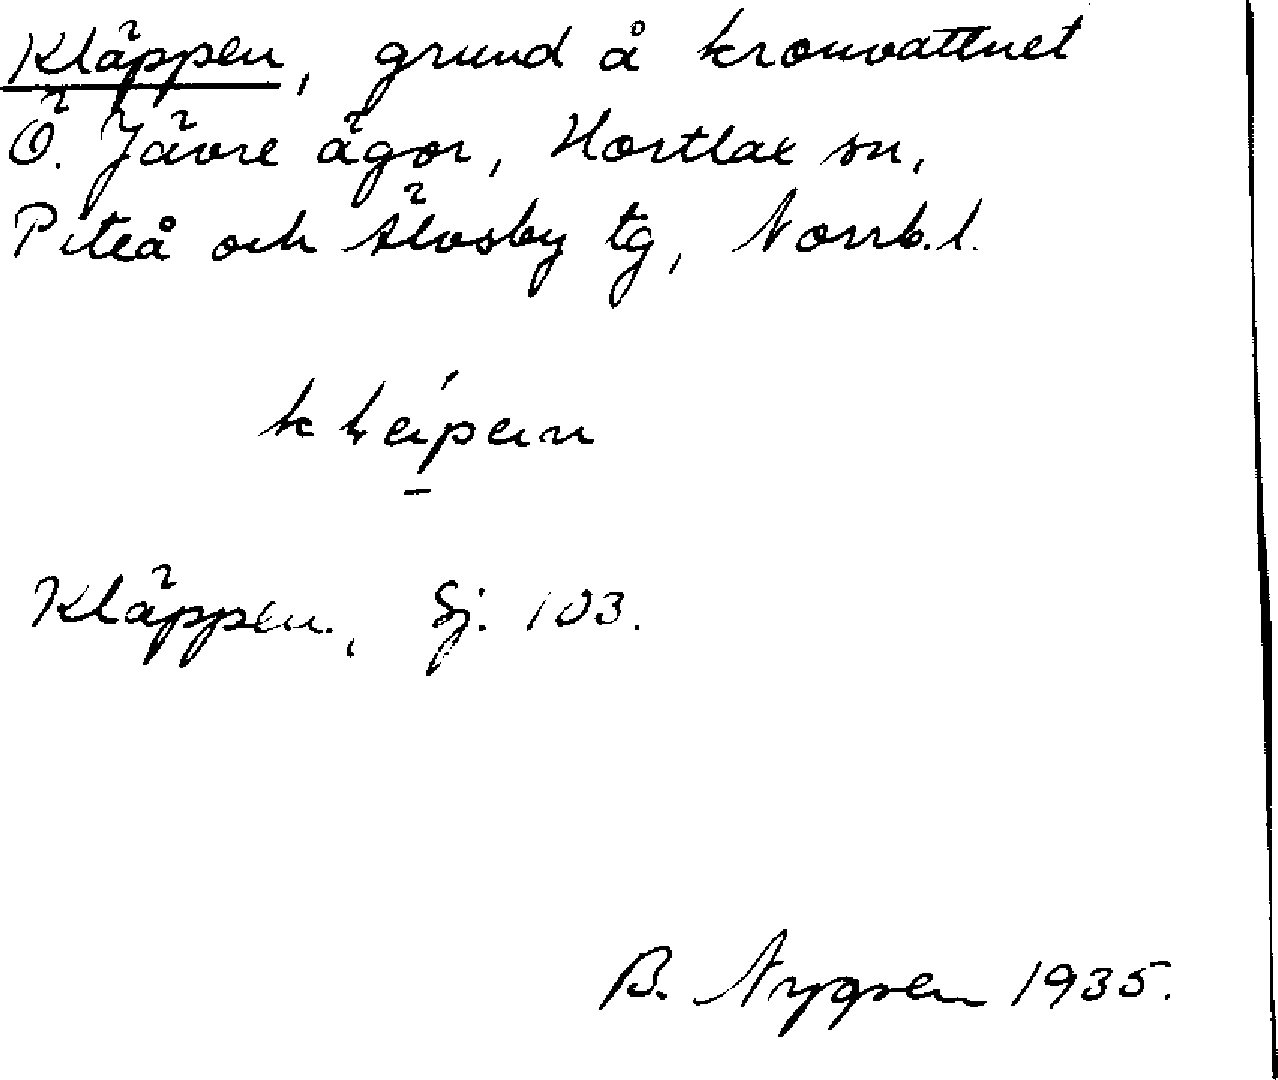 Kläppen, grund å kronvattnet
Ö. Jävre ägor, Hortlax sn,
Piteå och Älvsby tg, Norrb.l.
Kläppen, Sj. 103.
B. Nygren 1935.